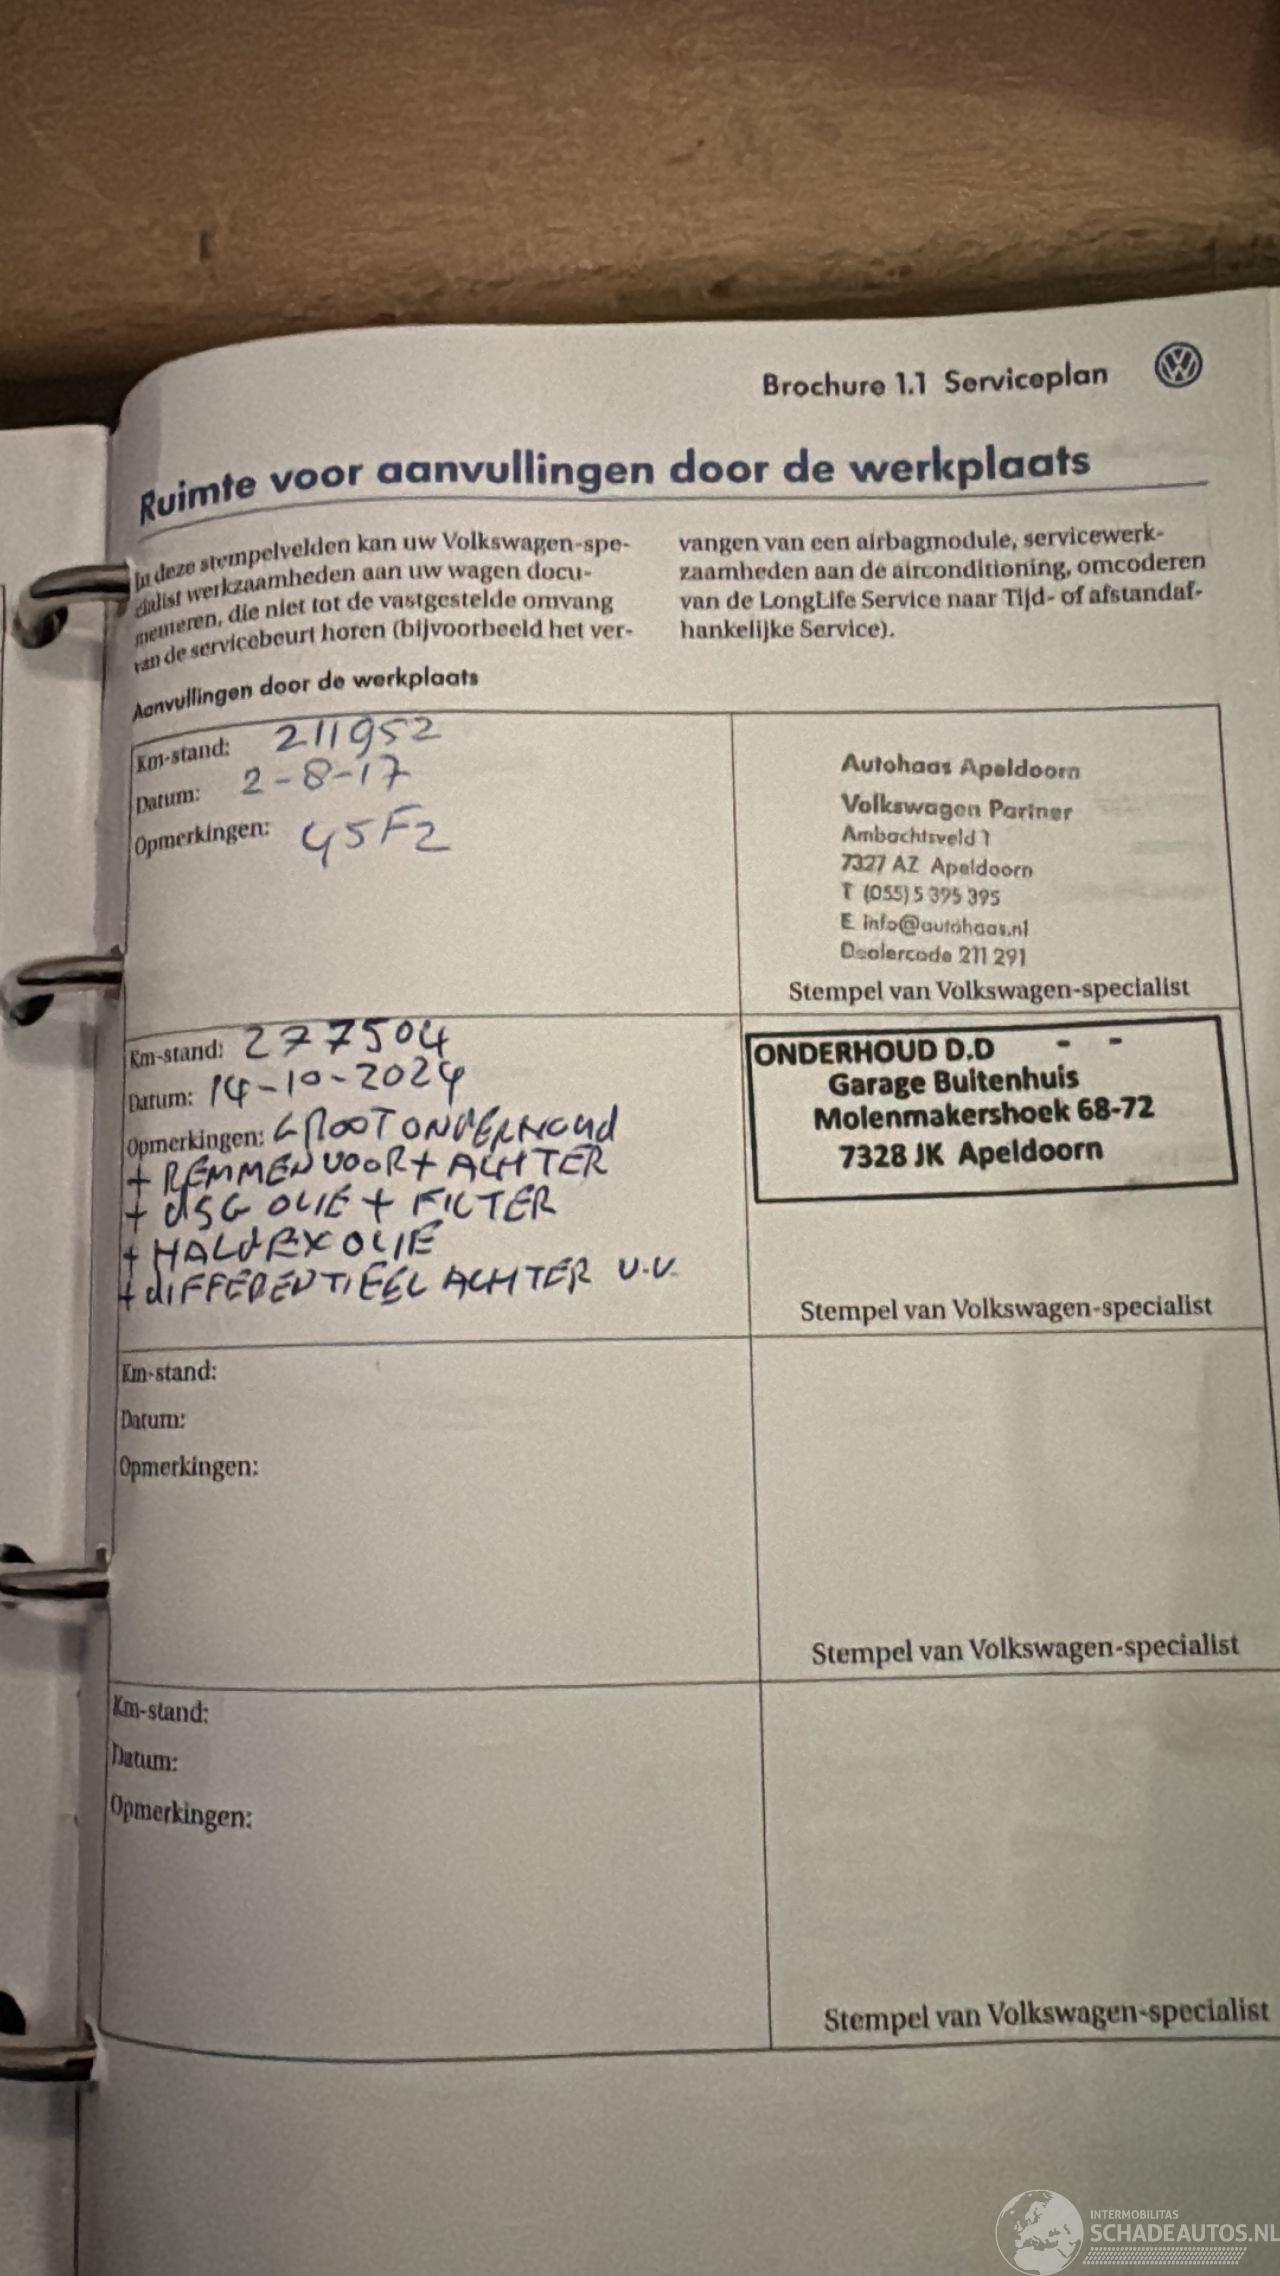 Brochure 1.1 Serviceplan
Ruimte voor aanvullingen door de werkplaats
In deze stempelvelden kan uw Volkswagen-spe-
cialist werkzaamheden aan uw wagen docu-
menteren, die niet tot de vastgestelde omvang
van de servicebeurt horen (bijvoorbeeld het ver-
vangen van een airbagmodule, servicewerk-
zaamheden aan de airconditioning, omcoderen
van de LongLife Service naar Tijd- of afstandaf-
hankelijke Service).
Aanvullingen door de werkplaats
Km-stand: 211952
Datum: 2-8-17
Opmerkingen: 45F2
Autohaas Apeldoorn
Volkswagen Partner
Ambachtsveld 1
7327 AZ Apeldoorn
T (055) 5 395 395
E info@autohaas.nl
Dealercode 211 291
Stempel van Volkswagen-specialist
Km-stand: 277504
Datum: 14-10-2024
Opmerkingen: GROOT ONDERHOUD
+ REMMEN VOOR + ACHTER
+ DSG OLIE + FILTER
+ HALDEX OLIE
+ DIFFERENTIEEL ACHTER V.V.
ONDERHOUD D.D - -
Garage Buitenhuis
Molenmakershoek 68-72
7328 JK Apeldoorn
Stempel van Volkswagen-specialist
Km-stand:
Datum:
Opmerkingen:
Stempel van Volkswagen-specialist
Km-stand:
Datum:
Opmerkingen:
Stempel van Volkswagen-specialist
INTERMOBILITAS
SCHADEAUTOS.NL